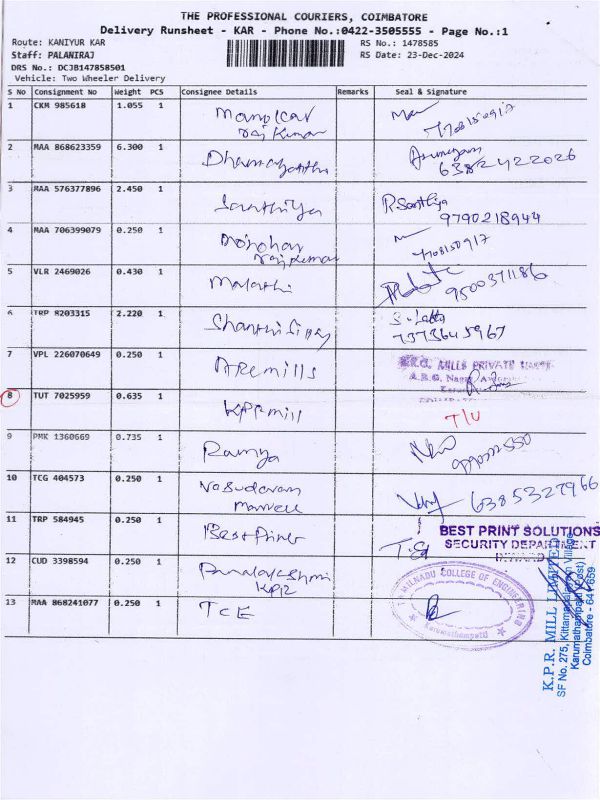 THE PROFESSIONAL COURIERS, COIMBATORE
Delivery Runsheet - KAR - Phone No.:0422-3505555 - Page No.:1
Route: KANIYUR KAR RS No.: 1478585
Staff: PALANIRAJ RS Date: 23-Dec-2024
DRS No.: DCJB147858501
Vehicle: Two Wheeler Delivery
S No Consignment No Weight PCS Consignee Details Remarks Seal & Signature
1 CKM 985618 1.055 1
7708150917
2 MAA 868623359 6.300 1 Dhamayanthi Arumugam
6382422026
3 MAA 576377896 2.450 1 Santhiya R Santhiya
9790218944
4 MAA 706399079 0.250 1 Manohar
rajkumar 7708150917
5 VLR 2469026 0.430 1 Malathi 9500371186
6 TRP 8203315 2.220 1
7373645967
7 VPL 226070649 0.250 1 ARG mills A.R.G. MILLS PRIVATE
8 TUT 7025959 0.635 1 KPR mill T/U
9 PMK 1360669 0.735 1 Ramya
10 TCG 404573 0.250 1 Vasudavan 6385327966
11 TRP 584945 0.250 1 Best Print BEST PRINT SOLUTIONS
SECURITY DEPARTMENT
INWARD
12 CUD 3398594 0.250 1
KPR
13 MAA 868241077 0.250 1 TCE
TAMILNADU COLLEGE OF ENGINEERING
Karumathampatti
K.P.R. MILL LIMITED
SF No. 275, Village
Karumathampatti (Post)
Coimbatore - 641 659